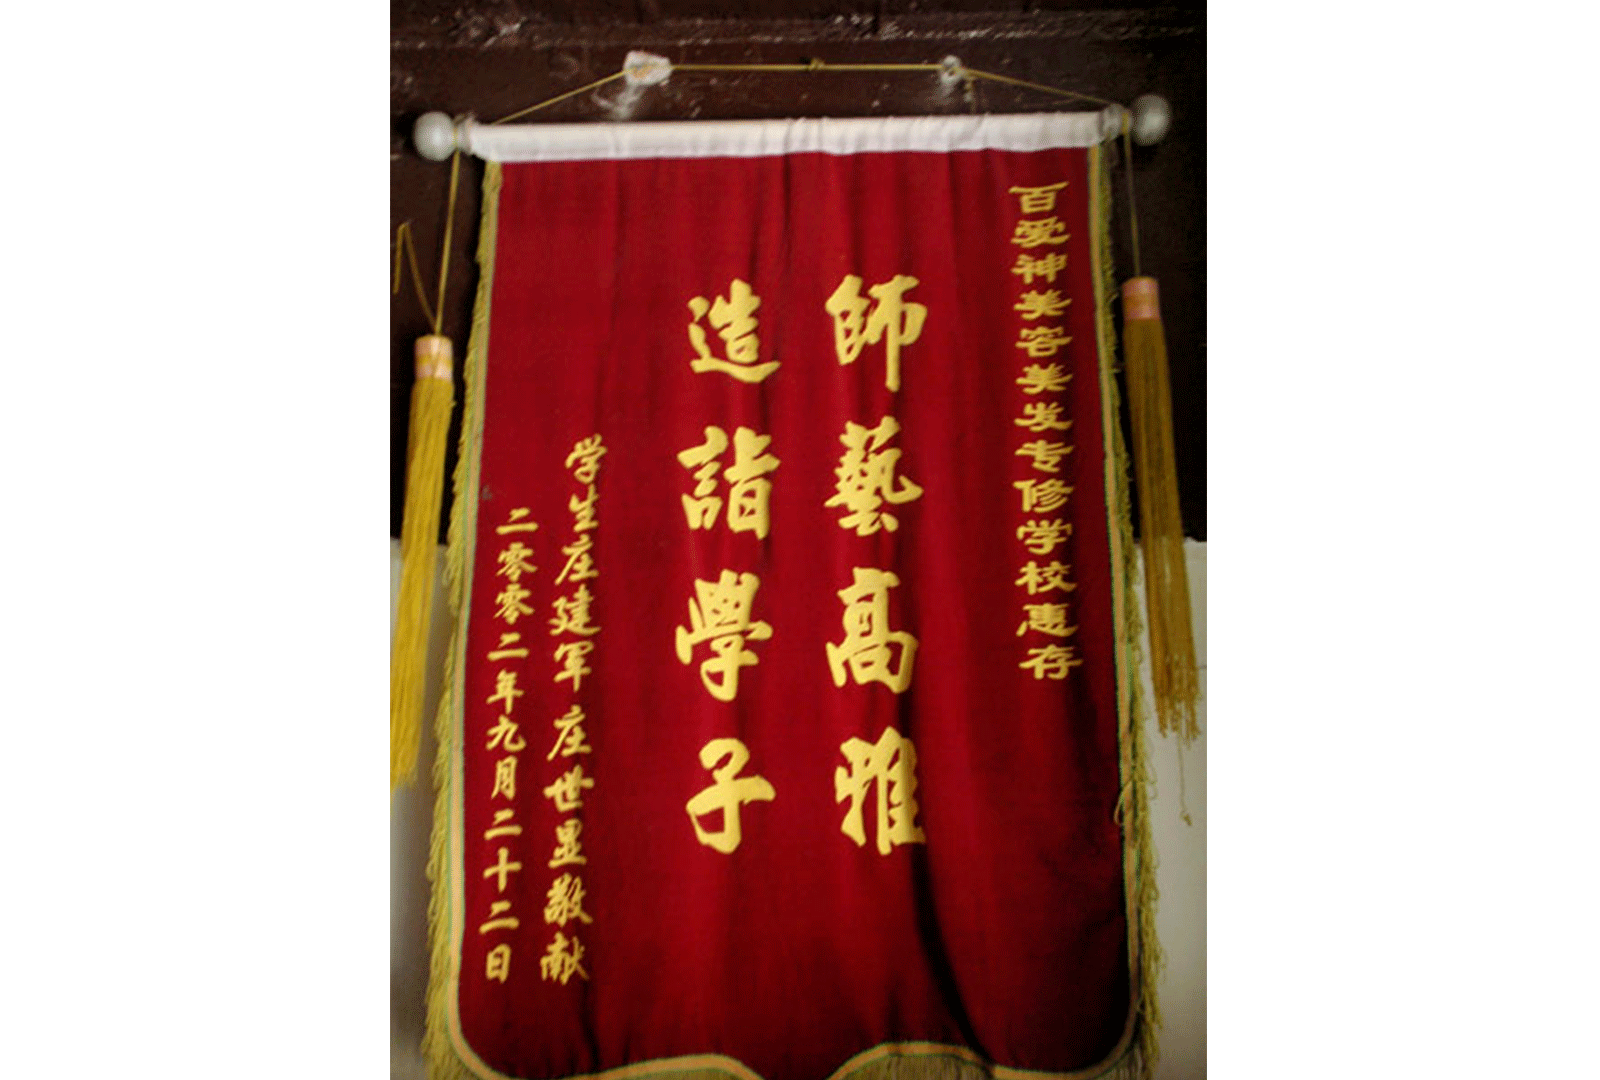 百爱神美容美发专修学校惠存
師藝高雅
造詣學子
学生庄建军庄世显敬献
二零零二年九月二十二日